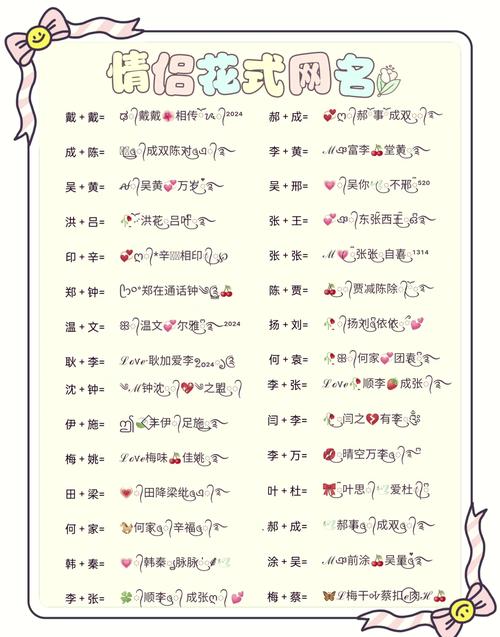 情侣花式网名
戴+戴= 戴戴🌺相传2024
郝+成= 💞郝事成双
成+陈= 成双陈对
李+黄= ℳ富李🍒堂黄
吴+黄= 吴黄💞万岁
吴+邢= 💗吴你不邢520
洪+吕= 🥀洪花吕叶
张+王= 💕东张西王
印+辛= 💞*辛相印
张+张= ℳ💗张张自喜1314
郑+钟= 郑在通话钟🍒
陈+贾= 贾减陈除
温+文= 温文💕尔雅2024
扬+刘= 🥀扬刘依依💕
耿+李= 𝓛ℴ𝓋ℯ耿加爱李2024
何+袁= 🥀何家💕团袁
沈+钟= ℳ钟沈💖之盟
李+张= 𝓛ℴ𝓋ℯ🥀顺李🍓成张
伊+施= 丰伊足施
闫+李= 🥀闫之💔有李
梅+姚= 𝓛ℴ𝓋ℯ梅味🍒佳姚
李+万= 💋晴空万李
田+梁= 💗田降梁纰
叶+杜= 🎀叶思爱杜
何+家= 何家辛福
.郝+成= 郝事成双
韩+秦= 💗韩秦脉脉
涂+吴= ℳ前涂🍒吴量
李+张= 🍀顺李成张💕
梅+蔡= 🦋梅干蔡扣肉🍒